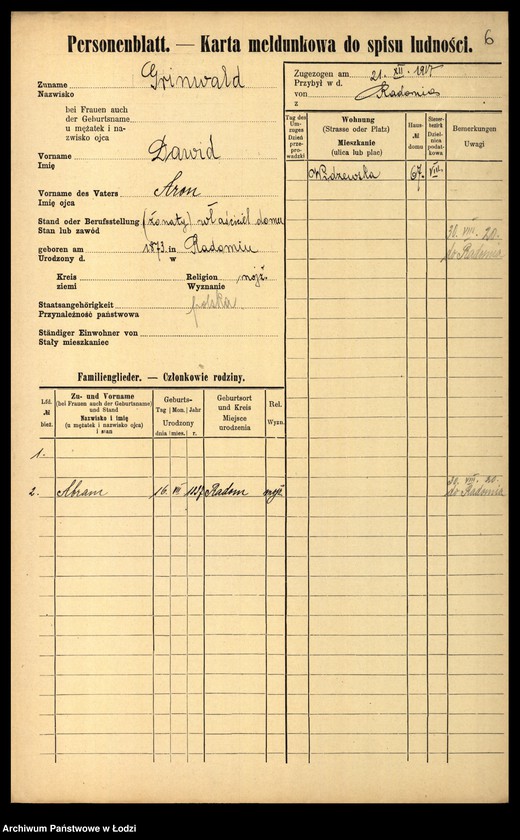 6
Personenblatt. — Karta meldunkowa do spisu ludności.
Zuname Grinwald
Nazwisko
bei Frauen auch
der Geburtsname
u mężatek i na-
zwisko ojca
Vorname Dawid
Imię
Vorname des Vaters Aron
Imię ojca
Stand oder Berufsstellung (żonaty) właściciel domu
Stan lub zawód
geboren am 1873 in Radomiu
Urodzony d. w
Kreis Religion mojż.
ziemi Wyznanie
Staatsangehörigkeit polska
Przynależność państwowa
Ständiger Einwohner von
Stały mieszkaniec
Zugezogen am 21. XII. 1917
Przybył w d.
von Radomia
z
Tag des Um-zuges Dzień prze-pro-wadzki
Wohnung (Strasse oder Platz) Mieszkanie (ulica lub plac)
Haus- № domu
Steuer-bezirk Dziel-nica podat-kowa
Bemerkungen Uwagi
Widzewska 67. VIII.
30. VIII. 20.
do Radomia
Familienglieder. — Członkowie rodziny.
Lfd. № bież.
Zu- und Vorname (bei Frauen auch der Geburtsname) und Stand Nazwisko i imię (u mężatek i nazwisko ojca) i stan
Geburts- Tag Mon. Jahr Urodzony dnia mies. r.
Geburtsort und Kreis Miejsce urodzenia
Rel. Wyzn.
1.
2. Abram 16. VII Radom mojż
30. VIII. 20.
do Radomia
Archiwum Państwowe w Łodzi